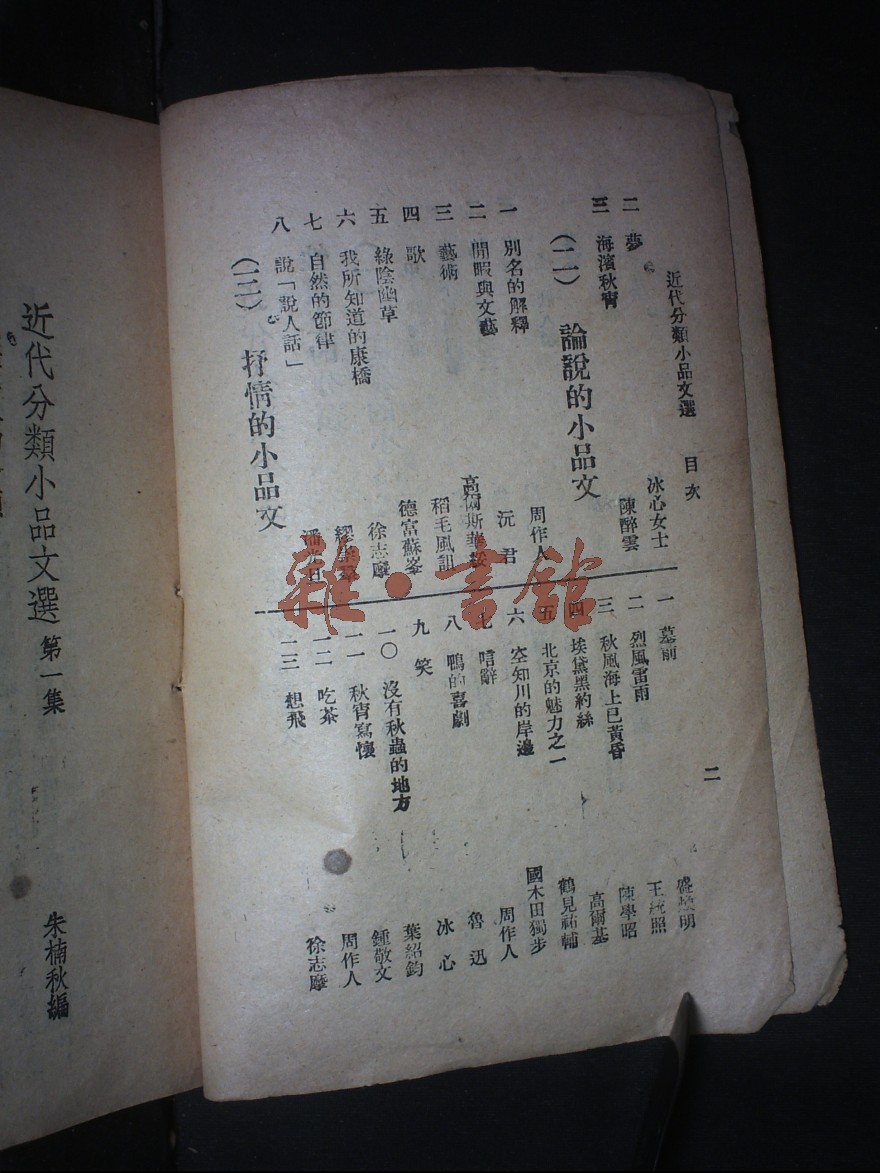 近代分類小品文選 目次
二 夢 冰心女士
三 海濱秋宵 陳醉雲
(二) 論說的小品文
一 別名的解釋 周作人
二 閒暇與文藝 沅君
三 藝術 高爾斯華綏
四 歌 稻毛風訕
五 綠陰幽草 德富蘇峯
六 我所知道的康橋 徐志摩
七 自然的節律
八 說「說人話」 潘光旦
(三) 抒情的小品文
二
一 墓前 盛煥明
二 烈風雷雨 王統照
三 秋風海上已黃昏 陳學昭
四 埃黛黑約絲 高爾基
五 北京的魅力之一 鶴見祐輔
六 空知川的岸邊 國木田獨步
七 唁辭 周作人
八 鴨的喜劇 魯迅
九 笑 冰心
一〇 沒有秋蟲的地方 葉紹鈞
一一 秋宵寫懷 鍾敬文
一二 吃茶 周作人
一三 想飛 徐志摩
近代分類小品文選 第一集
朱楠秋編
雜·書館